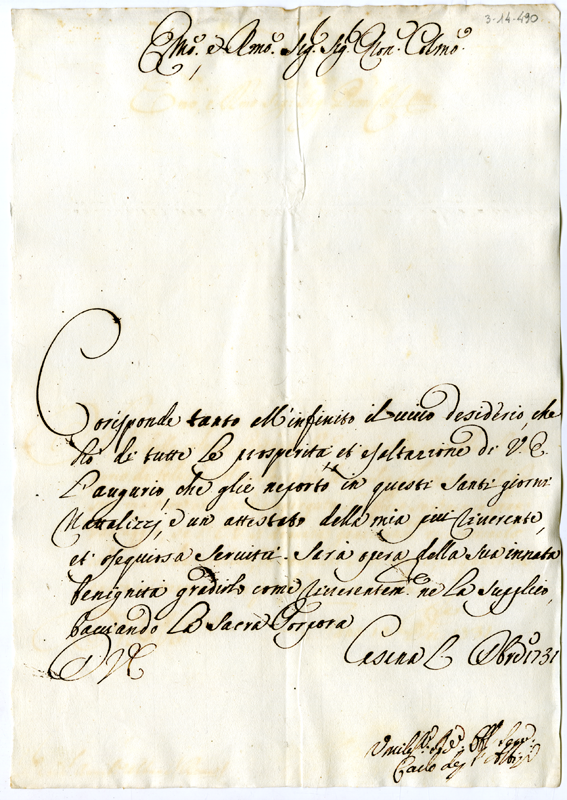 3-14-490
Em̃o, e Rm̃o. Sig.r Sig.r Pron. Colmo.
Corisponde tanto all'infinito il vivo desiderio, che
ho di tutte le prosperità et esaltazione di V. E.
L'augurio, che glie ne porto in questi Santi giorni
Nattalizzj, è un attestato della mia più riverente,
et osequiosa servità. Sarà opera della Sua innata
benignità gradirlo come riverentem.te ne la supplico,
bacciando la Sacra Porpora
D V E
Cesena Xbre 1731
Carlo